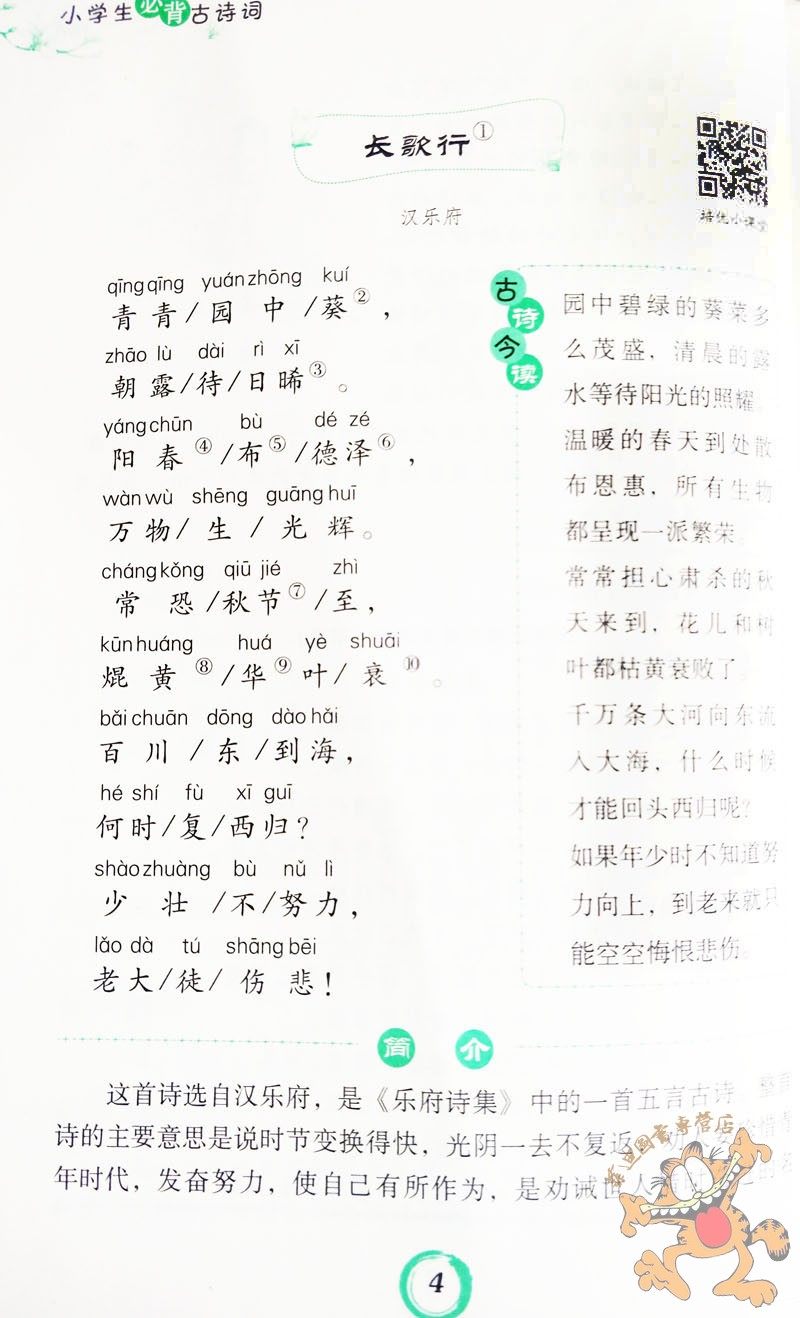 小学生必背古诗词
长歌行①
汉乐府
培优小课堂
qīng qīng yuán zhōng kuí
青青/园中/葵②，
zhāo lù dài rì xī
朝露/待/日晞③。
yáng chūn bù dé zé
阳春④/布⑤/德泽⑥，
wàn wù shēng guāng huī
万物/生/光辉。
cháng kǒng qiū jié zhì
常恐/秋节⑦/至，
kūn huáng huá yè shuāi
焜黄⑧/华⑨叶/衰⑩。
bǎi chuān dōng dào hǎi
百川/东/到海，
hé shí fù xī guī
何时/复/西归？
shào zhuàng bù nǔ lì
少壮/不/努力，
lǎo dà tú shāng bēi
老大/徒/伤悲！
古诗今读
园中碧绿的葵菜多
么茂盛，清晨的露
水等待阳光的照耀。
温暖的春天到处散
布恩惠，所有生物
都呈现一派繁荣。
常常担心肃杀的秋
天来到，花儿和树
叶都枯黄衰败了。
千万条大河向东流
入大海，什么时候
才能回头西归呢？
如果年少时不知道努
力向上，到老来就只
能空空悔恨悲伤。
简介
这首诗选自汉乐府，是《乐府诗集》中的一首五言古诗。整首
诗的主要意思是说时节变换得快，光阴一去不复返，劝人要珍惜青
年时代，发奋努力，使自己有所作为，是劝诫世人
图书专营店
4